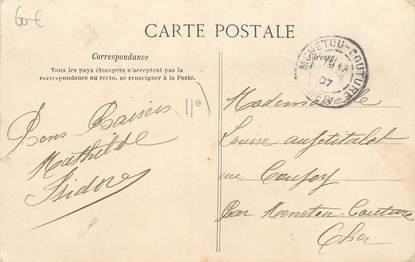 60 €
CARTE POSTALE
Correspondance
Tous les pays étrangers n'acceptent pas la
correspondance au recto, se renseigner à la Poste.
Adresse
MENETOU-COUTURE
07
CHER
Bons Baisers
Mathilde
Isidore
Mademoiselle
Louise
au
Par Menetou-Couture
Cher